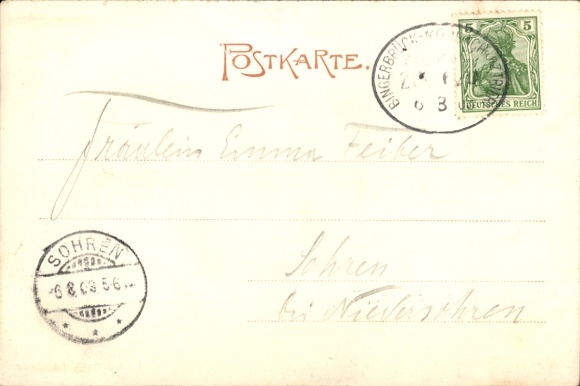 POSTKARTE.
5 5
DEUTSCHES REICH
6 8
Fräulein Emma Feiber
SOHREN
6 8 03 5-6
Sohren
bei Niedersohren